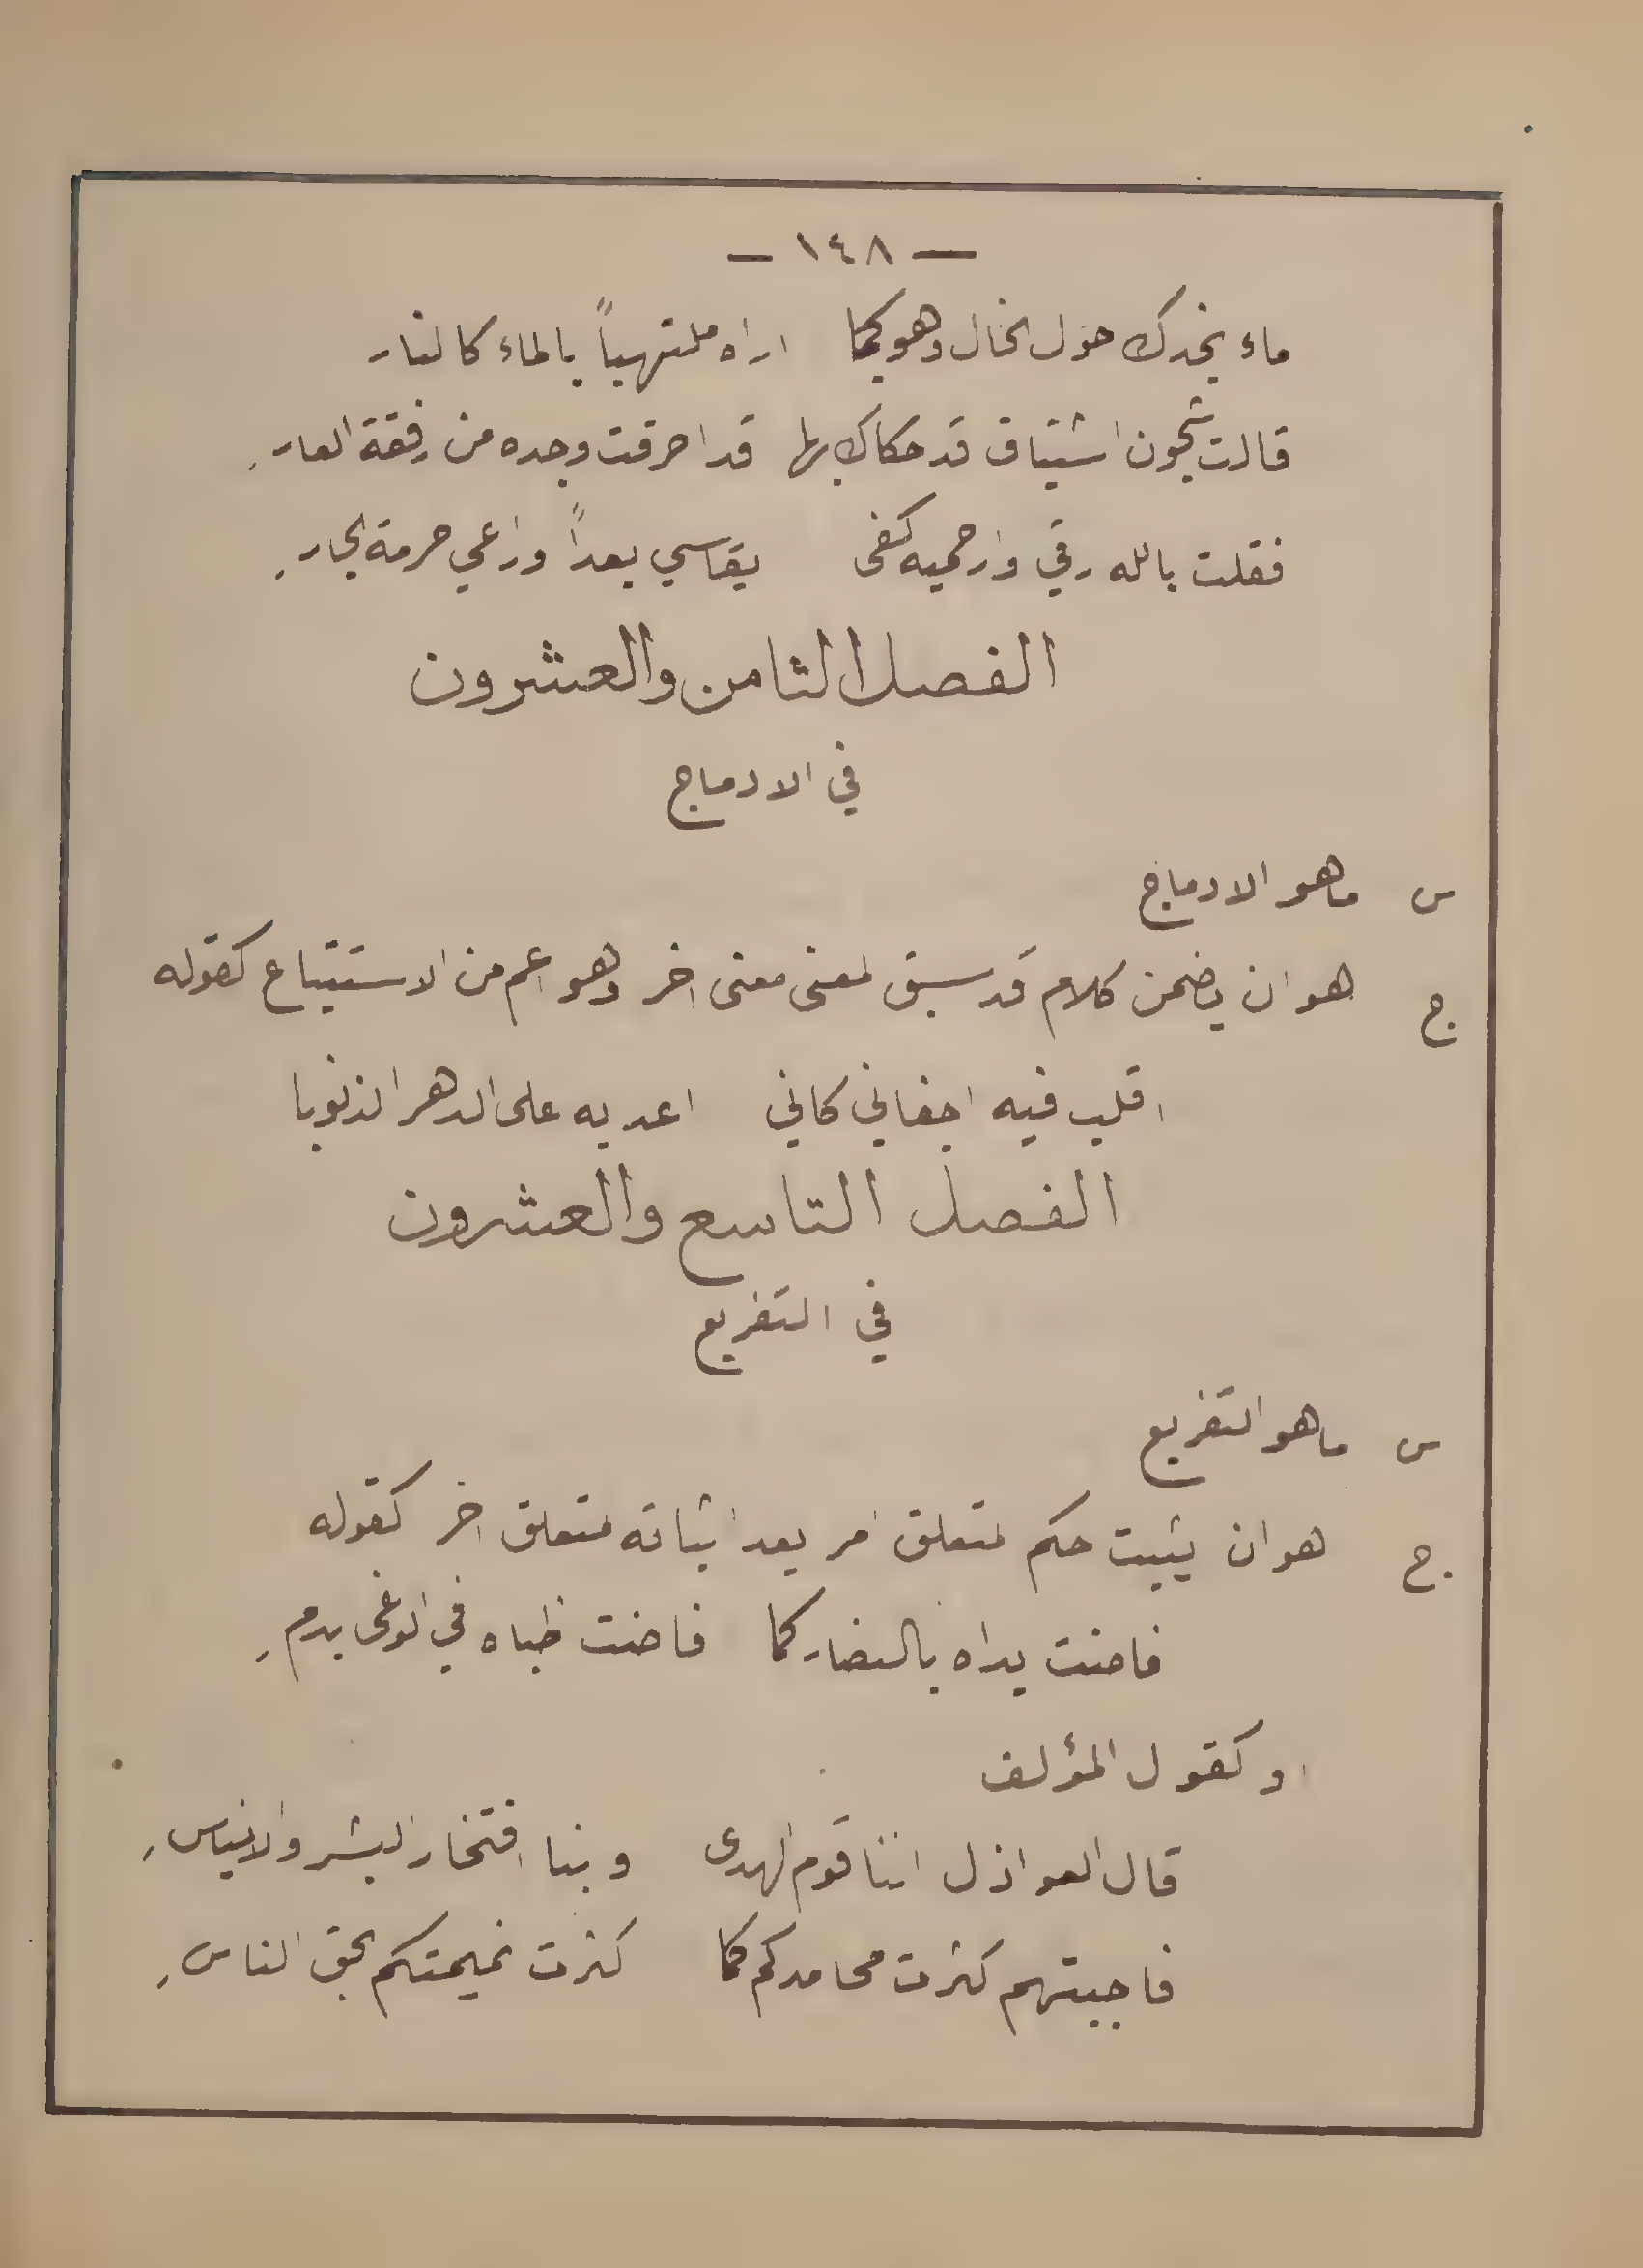 — ١٤٨ —
ماء بخدك حول الخال وهو كما اراه ملتهباً بالماء كالنار
قالت شجون اشتياق قد حكاك بها قد احرقت وجده من رفقة العار
فقلت بالله رقي وارحميه كفى يقاسي بعداً وراعي حرمة الجار
الفصل الثامن والعشرون
في الادماج
س ما هو الادماج
ج هو ان يضمن كلام قد سبق لمعنى معنى اخر وهو اعم من الاستتباع كقوله
اقلب فيه اجفاني كاني اعد به على الدهر الذنوبا
الفصل التاسع والعشرون
في التفريع
س ما هو التفريع
ج هو ان يثبت حكم لمتعلق امر بعد اثباته لمتعلق اخر كقوله
فاضت يداه بالنضار كما فاضت ظباه في الوغى بدمِ
او كقول المؤلف
قال العواذل اننا قوم الهدى وبنا افتخار البشر والانياسِ
فاجبتهم كثرت محامدكم كما كثرت نميمتكم بحق الناسِ